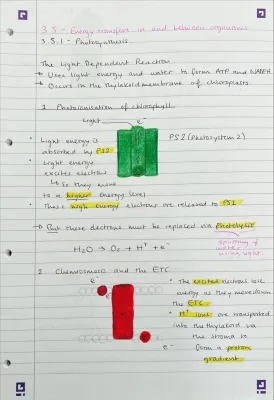 3.5 - Energy transfers in and between organisms
3.5.1 - Photosynthesis
The Light Dependent Reaction
→ Uses light energy and water to form ATP and NADPH
→ Occurs in the thylakoid membrane of chloroplasts
1. Photoionisation of chlorophyll
Light
e⁻
PS2 (Photosystem 2)
• Light energy is
absorbed by PS2
• Light energy
excites electrons
↳ So they move
to a higher energy level
• These high energy electrons are released to PS1
→ But these electrons must be replaced via Photolysis
splitting of
water
using light
H₂O → O₂ + H⁺ + e⁻
2. Chemiosmosis and the ETC
e⁻
• The excited electrons lose
energy as they move down
the ETC
• H⁺ ions are transported
into the thylakoid via
the stroma to
form a proton
gradient
e⁻